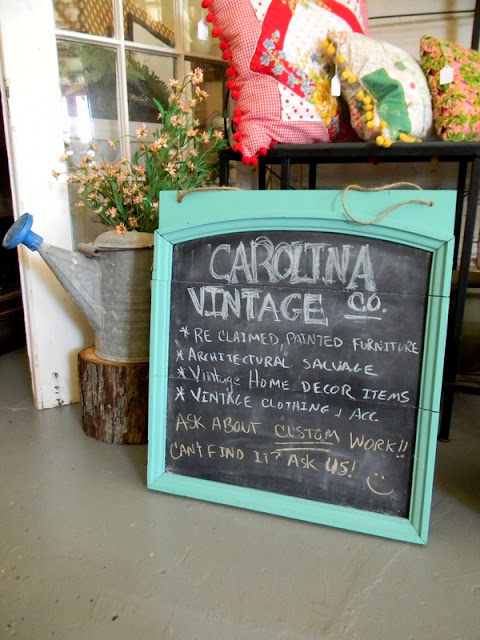 CAROLINA
VINTAGE CO.
* RECLAIMED, PAINTED FURNITURE
* ARCHITECTURAL SALVAGE
* Vintage HOME DECOR ITEMS
* VINTAGE CLOTHING & ACC
ASK ABOUT CUSTOM WORK!!
CAN'T FIND IT? ASK US!